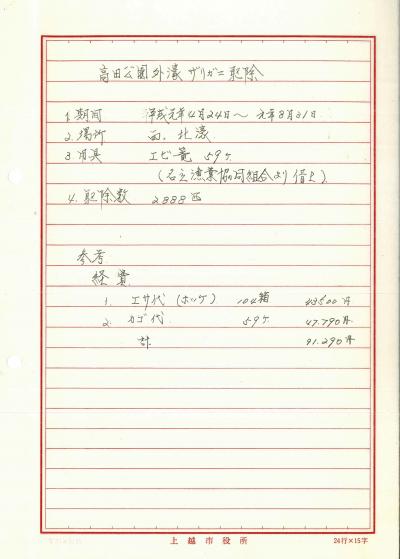 高田公園外濠ザリガニ駆除
1. 期間 平成元年4月24日～元年8月31日
2. 場所 西、北濠
3. 用具 エビ篭 59ケ
(名立漁業協同組合より借上)
4. 駆除数 2888匹
参考
経費
1. エサ代 (ホッケ) 104箱 43500円
2. カゴ代 59ケ 47.790円
計 91.290円
上越市役所
24行×15字